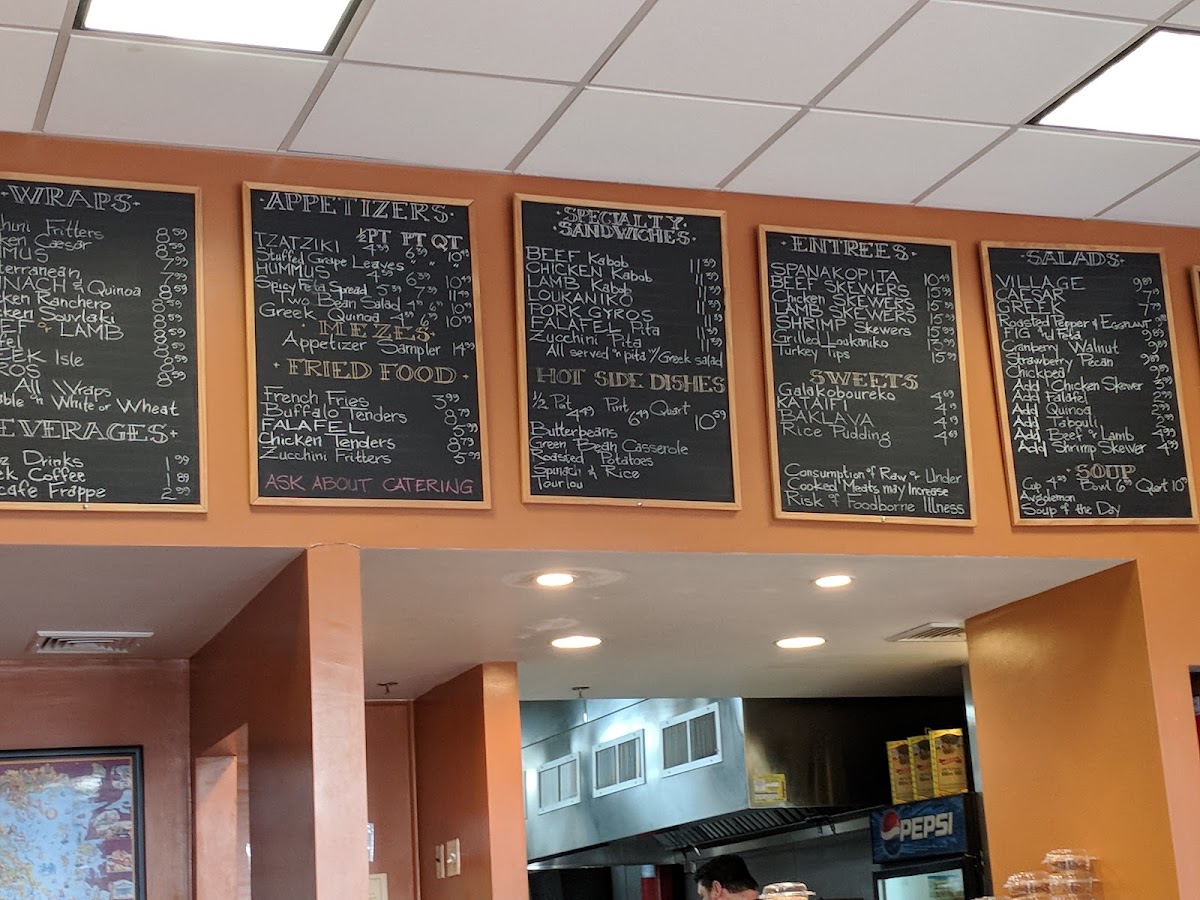 ·WRAPS·
hini Fritters 8.59
ken Caesar 8.59
MMUS 7.99
terranean
NACH & Quinoa
ken Ranchero 8.59
ken Souvlaki 8.59
EF & LAMB
afel
EEK Isle
ROS 8.59
All Wraps
able n White or Wheat
EVERAGES·
z Drinks 1.99
ek Coffee 1.89
cafe Frappe 2.99
·APPETIZERS·
½PT PT QT
TZATZIKI 4.59 6.39 10.49
Stuffed Grape Leaves
HUMMUS 4.59 6.39 10.49
Spicy Feta Spread 5.39 7.39 11.49
Two Bean Salad 4.39 6.39 10.49
Greek Quinoa 4.59 6.59 10.99
·MEZES·
Appetizer Sampler 14.99
·FRIED FOOD·
French Fries 3.99
Buffalo Tenders 8.79
FALAFEL 5.99
Chicken Tenders 8.79
Zucchini Fritters 5.99
ASK ABOUT CATERING
SPECIALTY
SANDWICHES·
BEEF Kabob 11.39
CHICKEN Kabob 11.39
LAMB Kabob 11.39
LOUKANIKO 11.39
PORK GYROS 11.39
FALAFEL Pita 11.39
Zucchini Pita 11.39
All served n pita w/ Greek salad
HOT SIDE DISHES
½ Pat Pint Quart
4.49 6.49 10.59
Butterbeans
Green Bean Casserole
Roasted Potatoes
Spinach & Rice
Tourlou
·ENTREES·
SPANAKOPITA 10.49
BEEF SKEWERS
Chicken SKEWERS
LAMB SKEWERS
SHRIMP Skewers 15.99
Grilled Loukaniko
Turkey Tips 15.99
SWEETS
Galakoboureko 4.69
KATAIFI 4.19
BAKLAVA 4.19
Rice Pudding 4.69
Consumption of Raw or Under
Cooked Meats may Increase
Risk of Foodborne Illness
·SALADS·
VILLAGE 9.89
CAESAR
GREEK 7.79
Roasted Pepper & EGGPLANT
FIG and Feta
Cranberry Walnut
Strawberry Pecan
Chickpea
Add Chicken Skewer
Add Falafel 2.99
Add Quinoa 2.99
Add Tabouli 2.99
Add Beef & Lamb 4.99
Add Shrimp Skewer 4.99
·SOUP
Cup 4.29 Bowl 6.29 Quart
Avgolemon
Soup of the Day
PEPSI